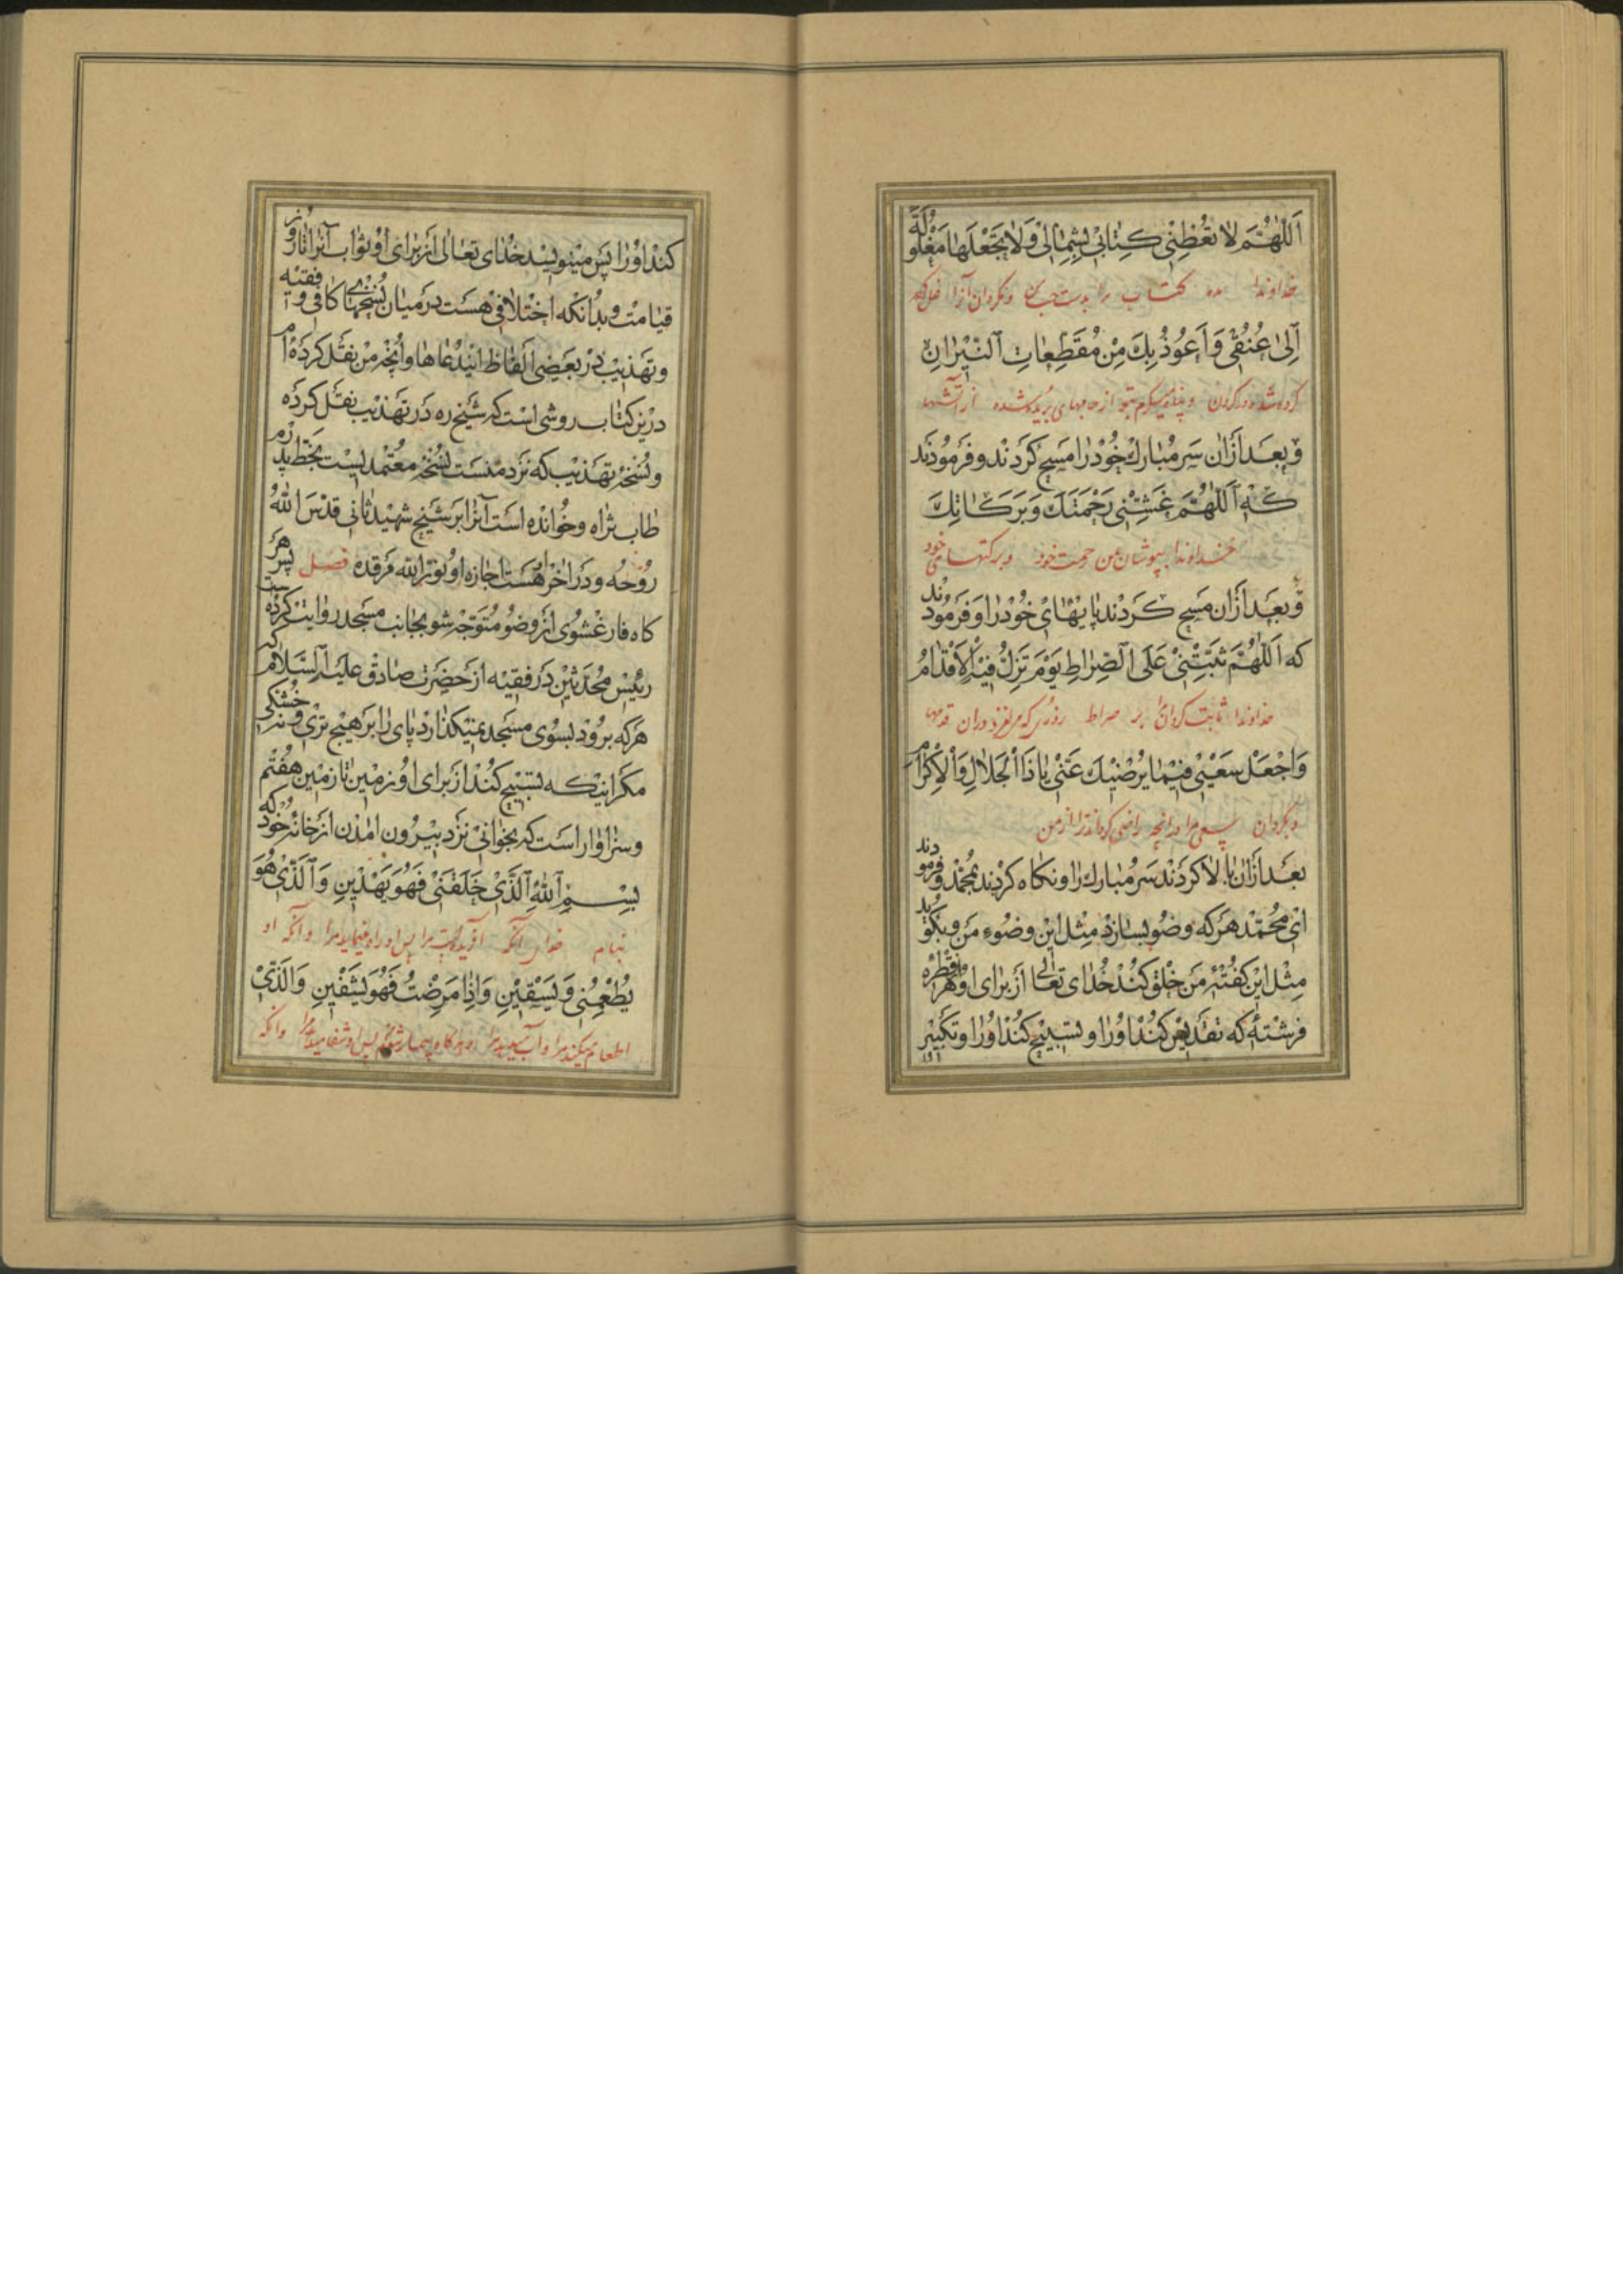 اَللّٰهُمَّ لا تُعْطِنى كِتابى بِشِمالى وَلا تَجْعَلها مَغْلُولَةً
خداوندا مده کتاب مرا بدست چپ من و مگردان آنرا غل
اِلىٰ عُنُقى وَاَعُوذُ بِكَ مِنْ مُقَطِّعاتِ النّيرانِ
کرده شده در گردن و پناه میگیرم بتو از جامهای بریده شده از آتشها
وبعد ازان سر مبارك خود را مسح كردند و فرمودند
كه اَللّٰهُمَّ غَشِّنى رَحْمَتَكَ وَبَرَكاتِكَ
خداوندا بپوشان بمن رحمت خود و برکتهای خود
وبعد ازان مسح كردند پايهاى خود را و فرمودند
كه اَللّٰهُمَّ ثَبِّتْنى عَلَى الصِّراطِ يَوْمَ تَزِلُّ فيهِ الاَقْدامُ
خداوندا ثابت گردان مرا بر صراط روزی که میلغزد در آن قدمها
وَاجْعَلْ سَعْيى فيما يُرْضيكَ عَنّى يا ذَا الْجَلالِ وَالْاِكْرامِ
و بگردان سعی مرا در آنچه راضی گرداند ترا از من
بعد ازان بالا كردند سر مبارك را و نكاه كردند بمحمد و فرمودند
اى محمد هركه وضو بسازد مثل اين وضوء من و بكويد
مثل اين كفتهٔ من خلق كند خداى تعالى از براى او از هر قطره
فرشتهٔ كه تقديس كند او را و تسبيح كند او را و تكبير
كند او را پس مينويسد خداى تعالى از براى او ثواب آنرا تا روز
قيامت و بدانكه اختلافى هست درميان نسخهاى كافى و فقيه
و تهذيب در بعضى الفاظ ايندعاها و آنچه من نقل كرده‌ام
درين كتاب روشى است كه شيخ ره در تهذيب نقل كرده
و نسخهٔ تهذيب كه نزد منست نسخهٔ معتمديست بخط پدرم
طاب ثراه و خوانده است آنرا بر شيخ شهيد ثانى قدس الله
روحه و در آخر هست اجازه او نور الله مرقده فصل پس هر
كاه فارغ شوى از وضو متوجه شو بجانب مسجد روايت كرده‌ست
رئيس محدثين در فقيه از حضرت صادق عليه السلام كه
هركه برود بسوى مسجد نميكذارد پاى را بر هيچ ترى و نه خشكى
مكر اينكه تسبيح كند از براى او زمين تا زمين هفتم
و سزاوار است كه بخوانى نزد بيرون امدن از خانه خود كه
بِسْمِ اللهِ الَّذى خَلَقَنى فَهُوَ يَهْدينِ وَالَّذى هُوَ
بنام خدای آنکه آفریده است مرا پس او راه مینماید مرا و آنکه او
يُطْعِمُنى وَيَسْقينِ وَاِذا مَرِضْتُ فَهُوَ يَشْفينِ وَالَّذى
اطعام میکند مرا و آب میدهد مرا و هرگاه بیمار شوم پس او شفا میدهد مرا و آنکه